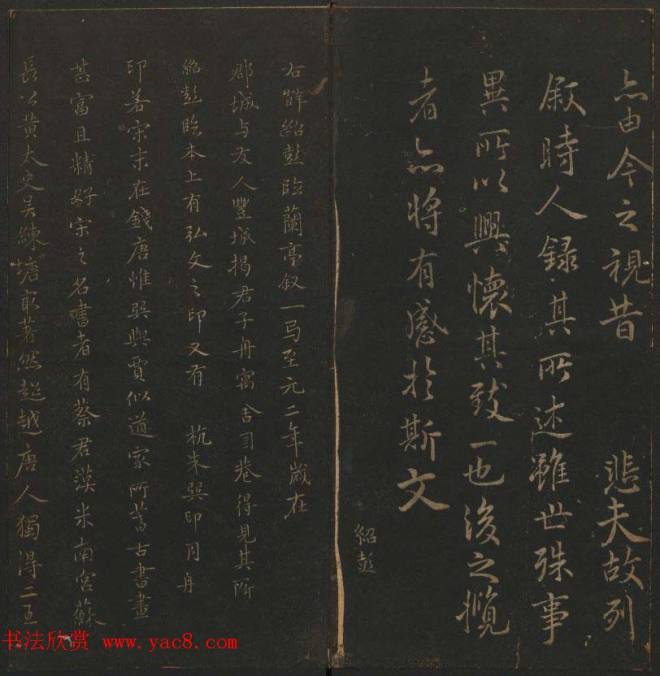 亦由今之視昔 悲夫故列
敘時人錄其所述雖世殊事
異所以興懷其致一也後之攬
者亦將有感於斯文
紹彭
右薛紹彭臨蘭亭敘一至元二年歲在
城与友人豐城揭君子舟寓舍巷得見其所
紹彭臨本上有弘文之印又有 杭朱巽印月舟
印善宋末在錢唐惟巽與賈似道家所蓄古書畫
甚富且精好宋之名書者有蔡君謨米南宮蘇
長公黃太史吳練塘然超越唐人獨得二王
书法欣赏 www.yac8.com